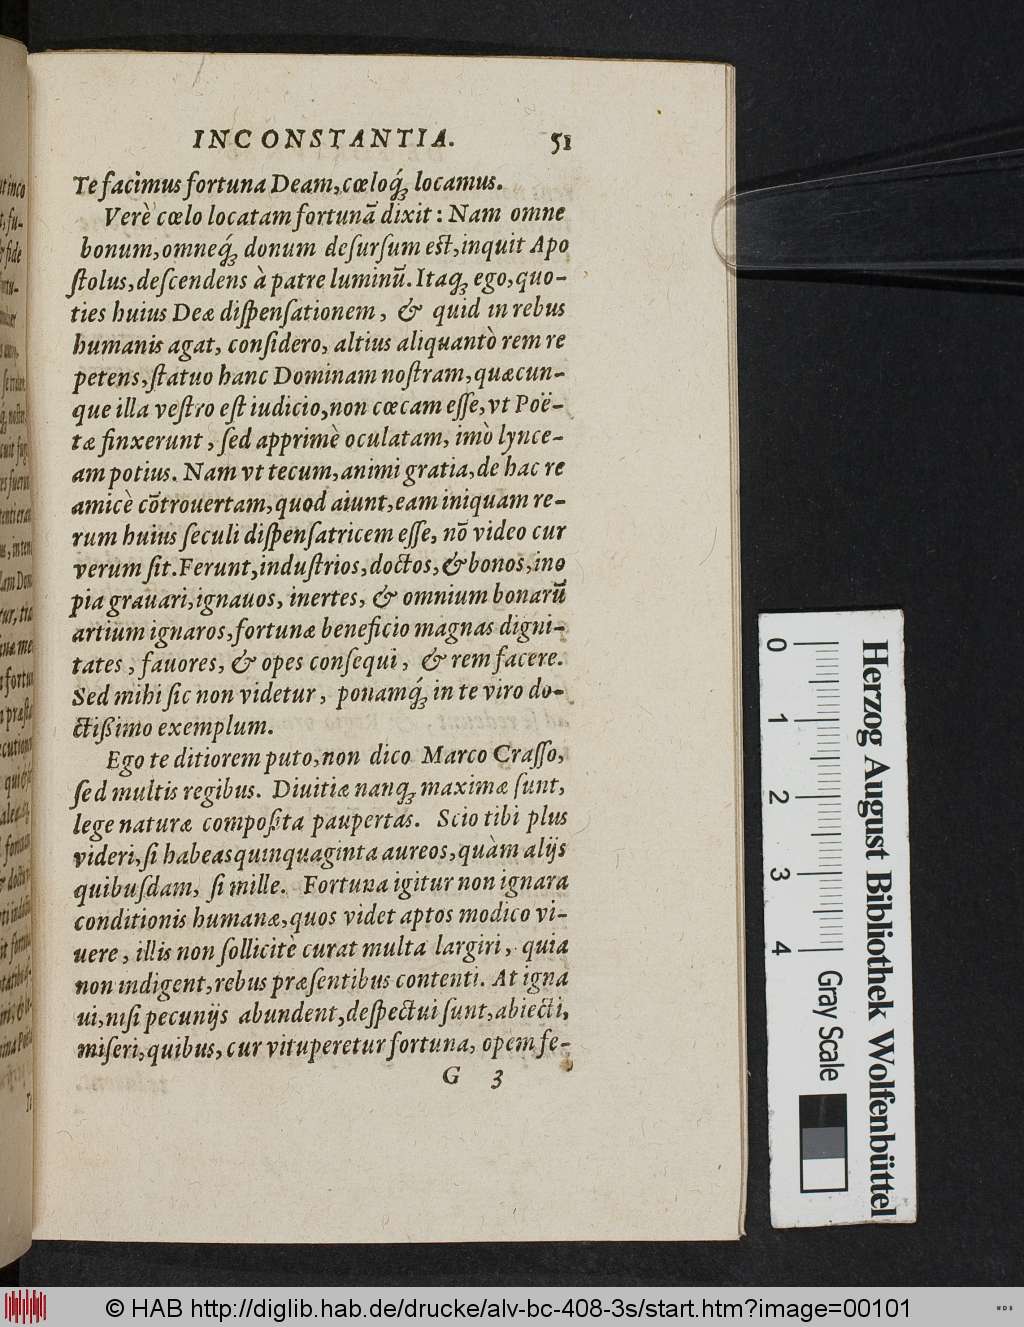 INCONSTANTIA. 51
Te facimus fortuna Deam, cœloq́ꝫ locamus.
Verè cœlo locatam fortunā dixit: Nam omne
bonum, omneq́ꝫ donum deſurſum est, inquit Apo
ſtolus, deſcendens à patre luminū. Itaqꝫ ego, quo-
ties huius Deæ diſpenſationem, & quid in rebus
humanis agat, conſidero, altius aliquantò rem re
petens, ſtatuo hanc Dominam noſtram, quæcun-
que illa veſtro eſt iudicio, non cœcam eſſe, vt Poë-
tæ finxerunt, ſed apprimè oculatam, imò lynce-
am potius. Nam vt tecum, animi gratia, de hac re
amicè cōtrouertam, quod aiunt, eam iniquam re-
rum huius ſeculi diſpenſatricem eſſe, nō video cur
verum ſit. Ferunt, induſtrios, doctos, & bonos, ino
pia grauari, ignauos, inertes, & omnium bonarū
artium ignaros, fortunæ beneficio magnas digni-
tates, fauores, & opes conſequi, & rem facere.
Sed mihi ſic non videtur, ponamq́ꝫ in te viro do-
ctißimo exemplum.
Ego te ditiorem puto, non dico Marco Craſſo,
ſed multis regibus. Diuitiæ nanqꝫ maximæ ſunt,
lege naturæ compoſita paupertas. Scio tibi plus
videri, ſi habeas quinquaginta aureos, quàm alijs
quibuſdam, ſi mille. Fortuna igitur non ignara
conditionis humanæ, quos videt aptos modico vi-
uere, illis non ſollicitè curat multa largiri, quia
non indigent, rebus præſentibus contenti. At igna
ui, niſi pecunijs abundent, deſpectui ſunt, abiecti,
miſeri, quibus, cur vituperetur fortuna, opem fe-
G 3
0 1 2 3 4
Gray Scale
Herzog August Bibliothek Wolfenbüttel
© HAB http://diglib.hab.de/drucke/alv-bc-408-3s/start.htm?image=00101